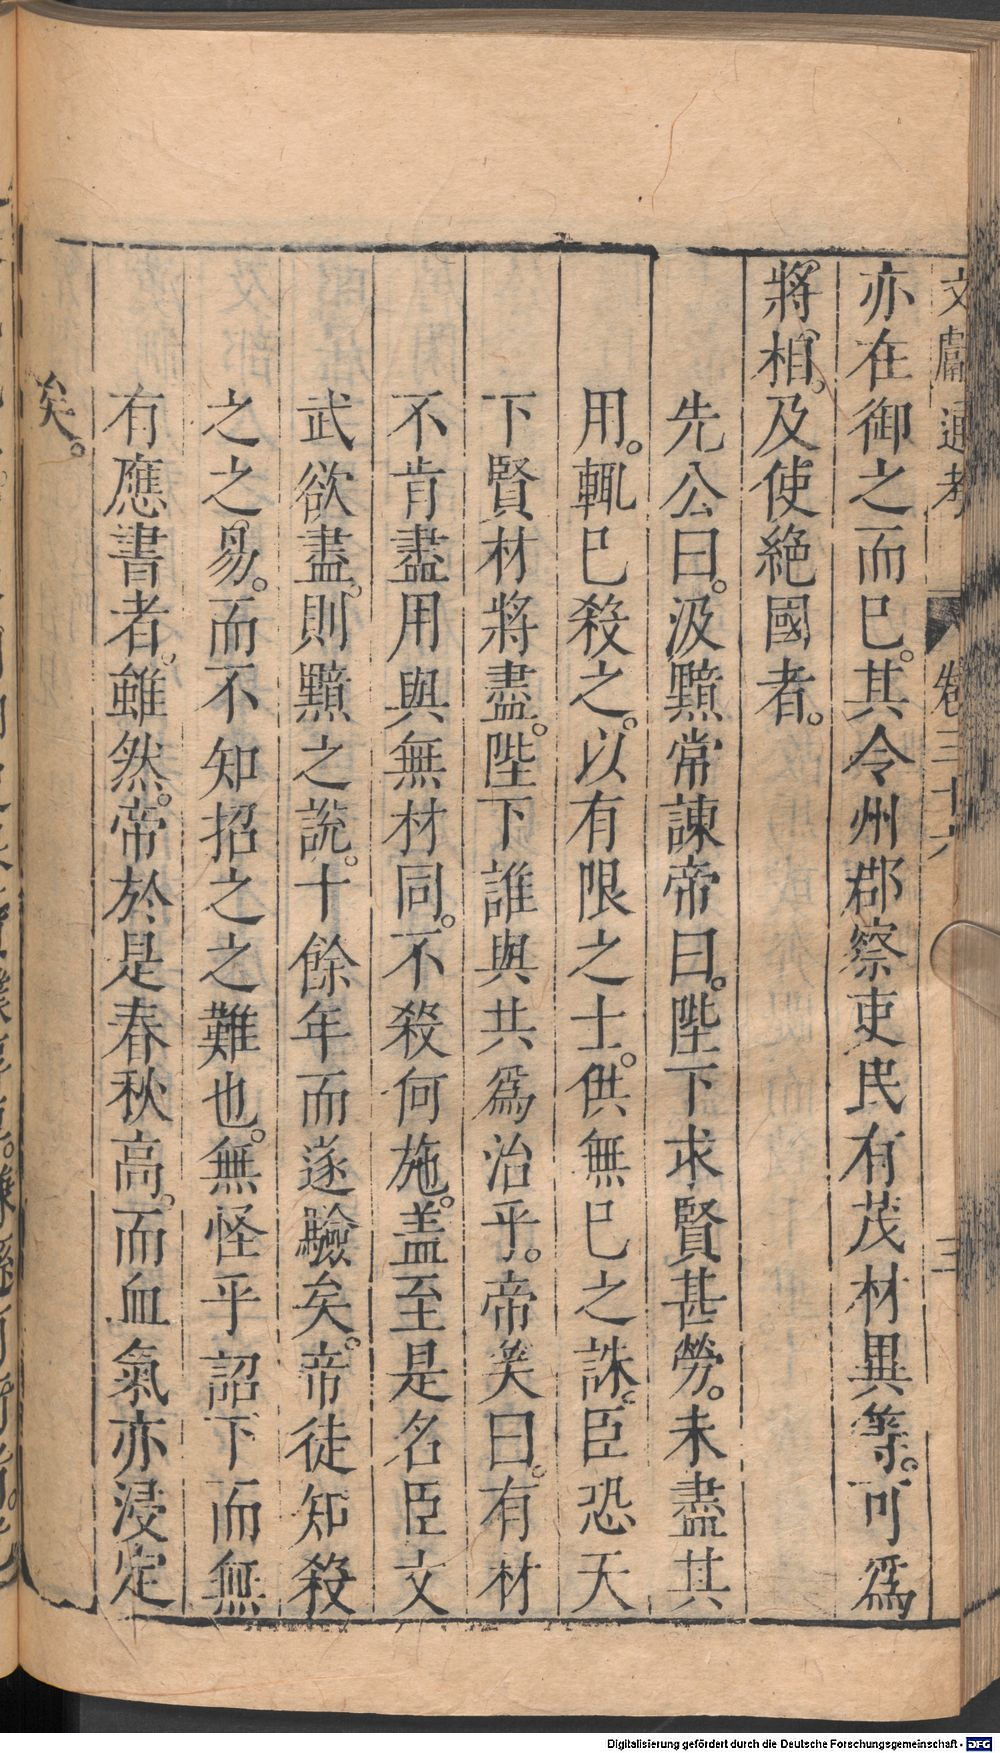 文獻通考 卷三十六 三
亦在御之而已。其令州郡察吏民有茂材異等。可爲
將相。及使絶國者。
先公曰。汲黯常諫帝曰。陛下求賢甚勞。未盡其
用。輒巳殺之。以有限之士。供無巳之誅。臣恐天
下賢材將盡。陛下誰與共爲治乎。帝笑曰。有材
不肯盡用與無材同。不殺何施。盖至是名臣文
武欲盡。則黯之說。十餘年而遂驗矣。帝徒知殺
之之易。而不知招之之難也。無怪乎詔下而無
有應書者。雖然。帝於是春秋高。而血氣亦浸定
矣。
Digitalisierung gefördert durch die Deutsche Forschungsgemeinschaft - DFG